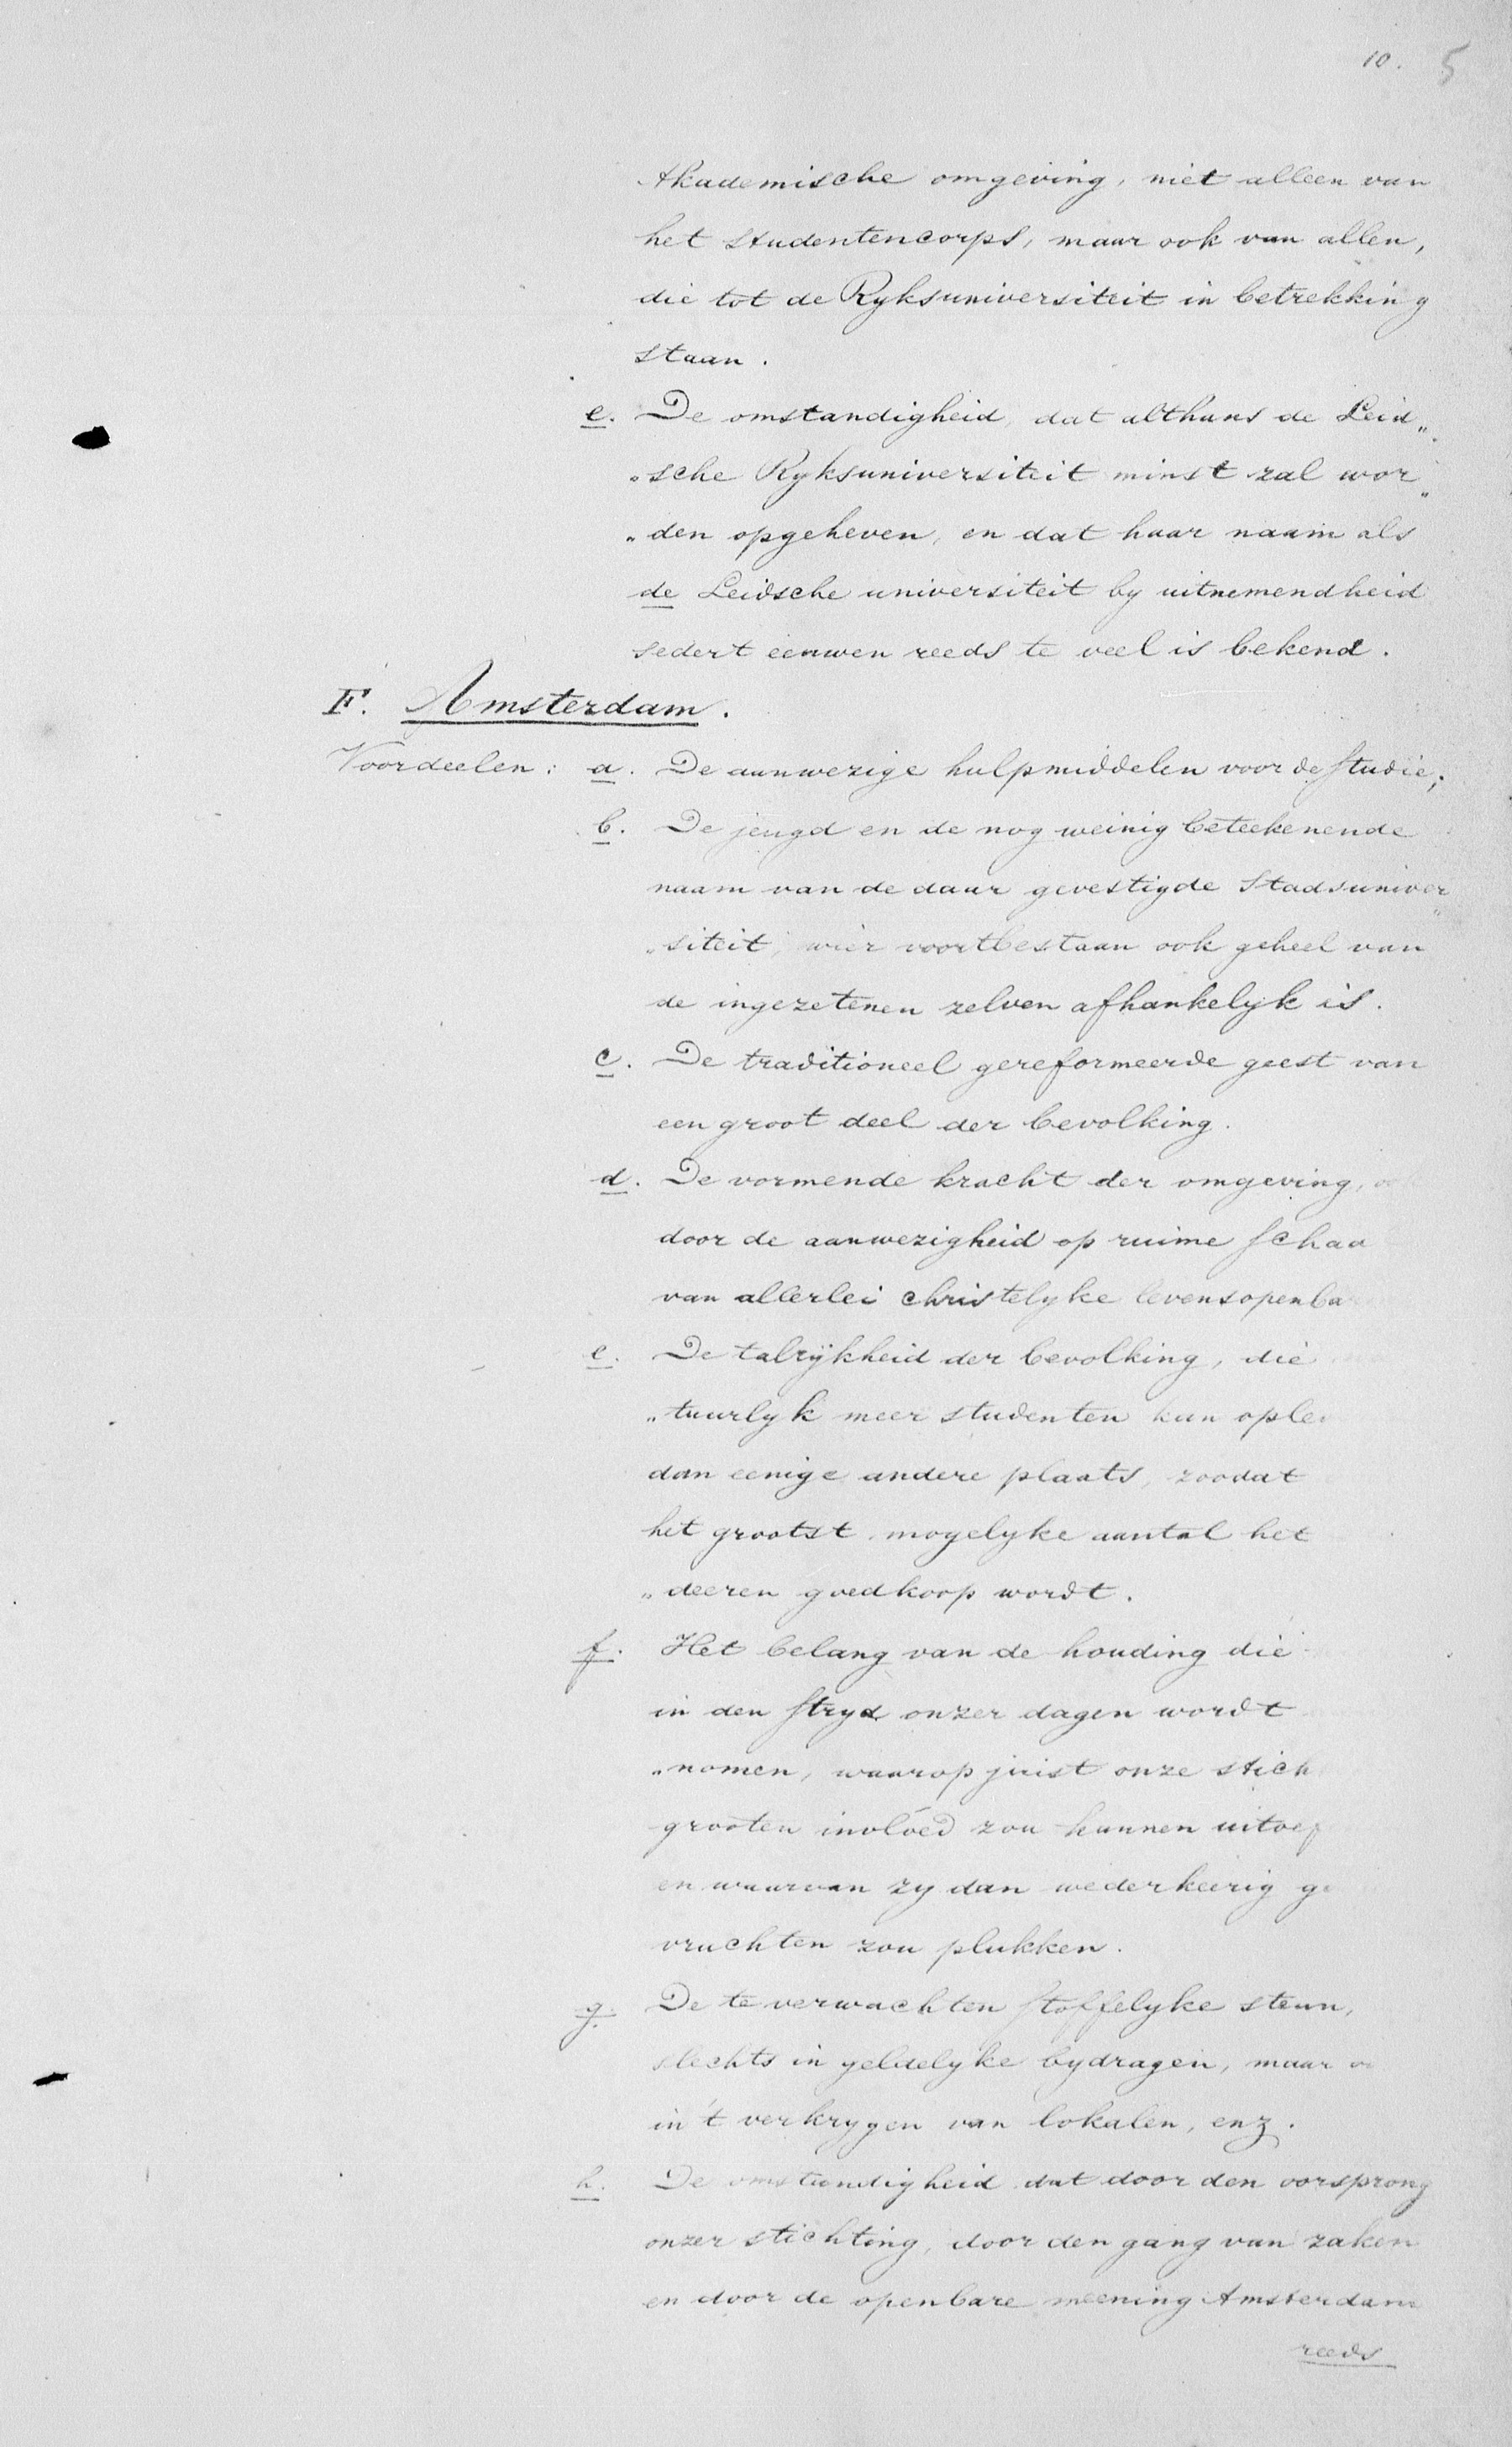 10. 5
Akademische omgeving, niet alleen van
het studentencorps, maar ook van allen,
die tot de Ryksuniversiteit in betrekking
staan.
e. De omstandigheid, dat althans de Leid„
„sche Ryksuniversiteit minst zal wor„
„den opgeheven, en dat haar naam als
de Leidsche universiteit by uitnemendheid
sedert eeuwen reeds te veel is bekend.
F. Amsterdam.
Voordeelen: a. De aanwezige hulpmiddelen voor de studie;
b. De jeugd en de nog weinig beteekenende
naam van de daar gevestigde Stadsuniver„
„siteit, wier voortbestaan ook geheel van
de ingezetenen zelven afhankelyk is.
c. De traditioneel gereformeerde geest van
een groot deel der bevolking.
d. De vormende kracht der omgeving,
door de aanwezigheid op ruime schaa
van allerlei christelyke levensopenba
e. De talrijkheid der bevolking, die
„tuurlyk meer studenten kan oplev
dan eenige andere plaats, zoodat
het grootst mogelyke aantal het
„deeren goedkoop wordt.
f. Het belang van de houding die
in den stryd onzer dagen wordt
„nomen, waarop juist onze stich
grooten invloed zou kunnen uitoef
en waarvan zy dan wederkeerig
vruchten zou plukken.
g. De te verwachten stoffelyke steun,
slechts in geldelyke bydragen, maar
in 't verkrygen van lokalen, enz.
h. De omstandigheid dat door den voorsprong
onzer stichting, door den gang van zaken
en door de openbare meening Amsterdam
reeds